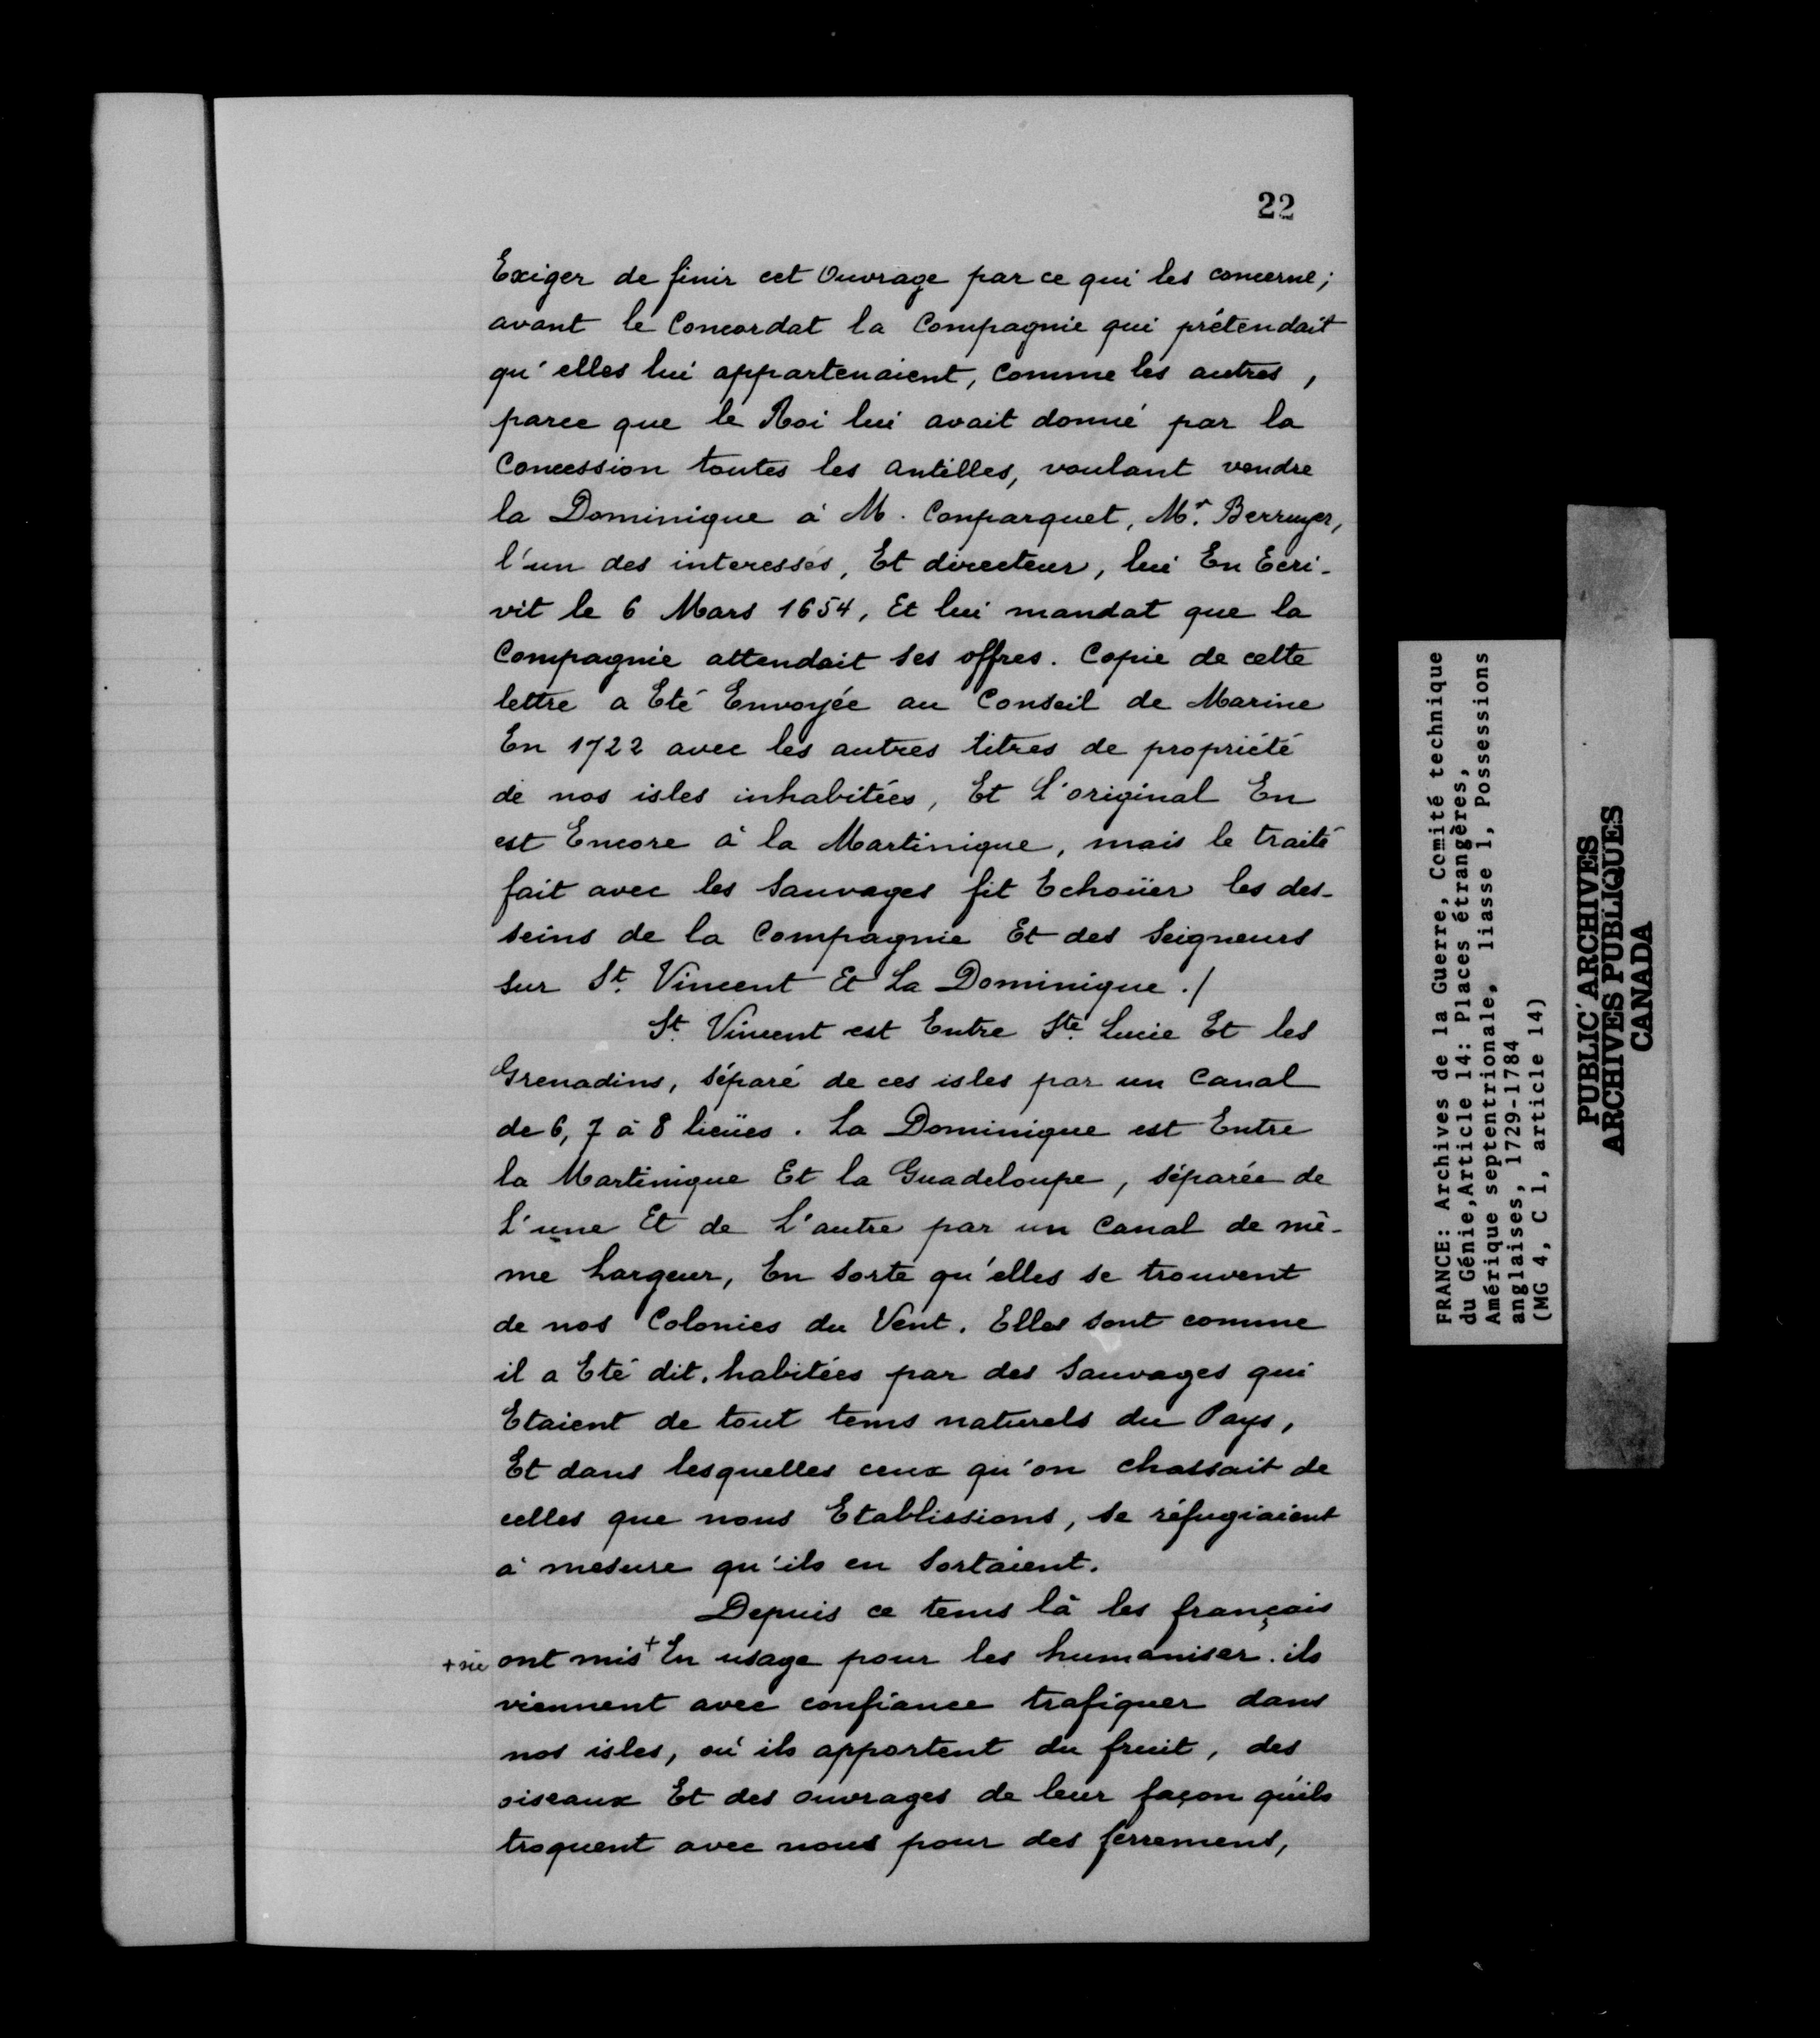 22
Exiger de finir cet Ouvrage par ce qui les concerne;
avant le Concordat la Compagnie qui prétendait
qu'elles lui appartenaient, comme les autres,
parce que le Roi lui avait donné par la
Concession toutes les Antilles, voulant vendre
la Dominique à M. Conparquet, Mr. Berruyer,
l'un des interessés, Et directeur, lui En Ecri-
vit le 6 Mars 1654, Et lui mandat que la
Compagnie attendait ses offres. Copie de cette
lettre a Eté Envoyée au Conseil de Marine
En 1722 avec les autres titres de propriété
de nos isles inhabitées, Et L'original En
est Encore à la Martinique, mais le traité
fait avec les Sauvages fit Echoüer les des-
seins de la Compagnie Et des Seigneurs
sur St. Vincent Et La Dominique ./
St. Vincent est Entre Ste. Lucie Et les
Grenadins, séparé de ces isles par un Canal
de 6, 7 à 8 lieües. La Dominique est Entre
la Martinique Et la Guadeloupe, séparée de
L'une Et de L'autre par un Canal de mê-
me Largeur, En sorte qu'elles se trouvent
de nos Colonies du Vent. Elles sont comme
il a Eté dit, habitées par des Sauvages qui
Etaient de tout tems naturels du Pays,
Et dans lesquelles ceux qu'on chassait de
celles que nous Etablissions, se réfugiaient
à mesure qu'ils en Sortaient.
Depuis ce tems là les français
+ sic ont mis + En usage pour les humaniser. ils
viennent avec confiance trafiquer dans
nos isles, où ils apportent du fruit, des
oiseaux Et des ouvrages de leur façon qu'ils
troquent avec nous pour des ferremens,
FRANCE: Archives de la Guerre, Comité technique
du Génie, Article 14: Places étrangères,
Amérique septentrionale, liasse 1, Possessions
anglaises, 1729-1784
(MG 4, C 1, article 14)
PUBLIC ARCHIVES
ARCHIVES PUBLIQUES
CANADA